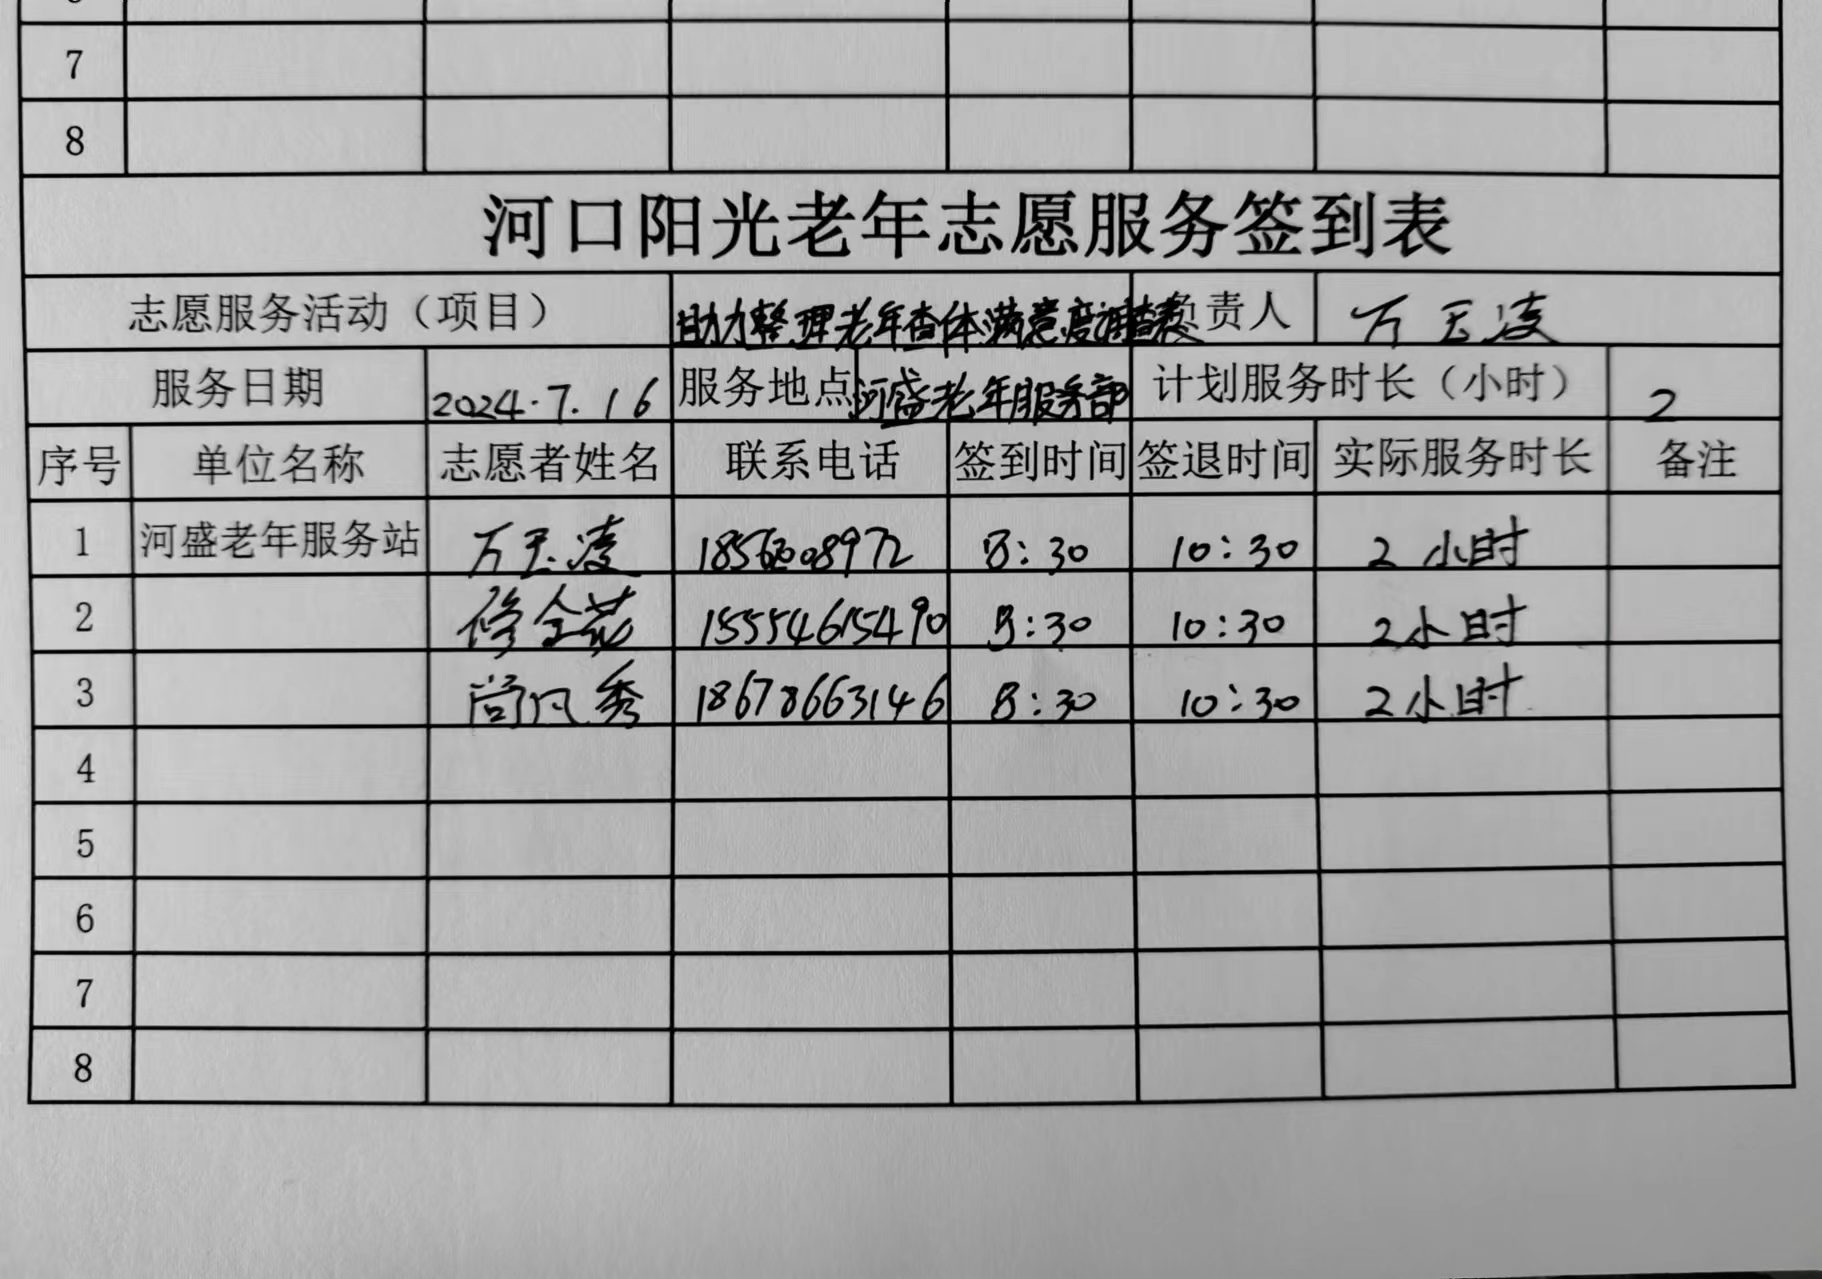 7
8
河口阳光老年志愿服务签到表
志愿服务活动（项目） 助力整理老年查体满意度调查表 负责人 万玉凌
服务日期 2024.7.16 服务地点 河盛老年服务部 计划服务时长（小时） 2
序号 单位名称 志愿者姓名 联系电话 签到时间 签退时间 实际服务时长 备注
1 河盛老年服务站 万玉凌 8:30 10:30 2小时
2 15554615490 8:30 10:30 2小时
3 尚风秀 18678663146 8:30 10:30 2小时
4
5
6
7
8